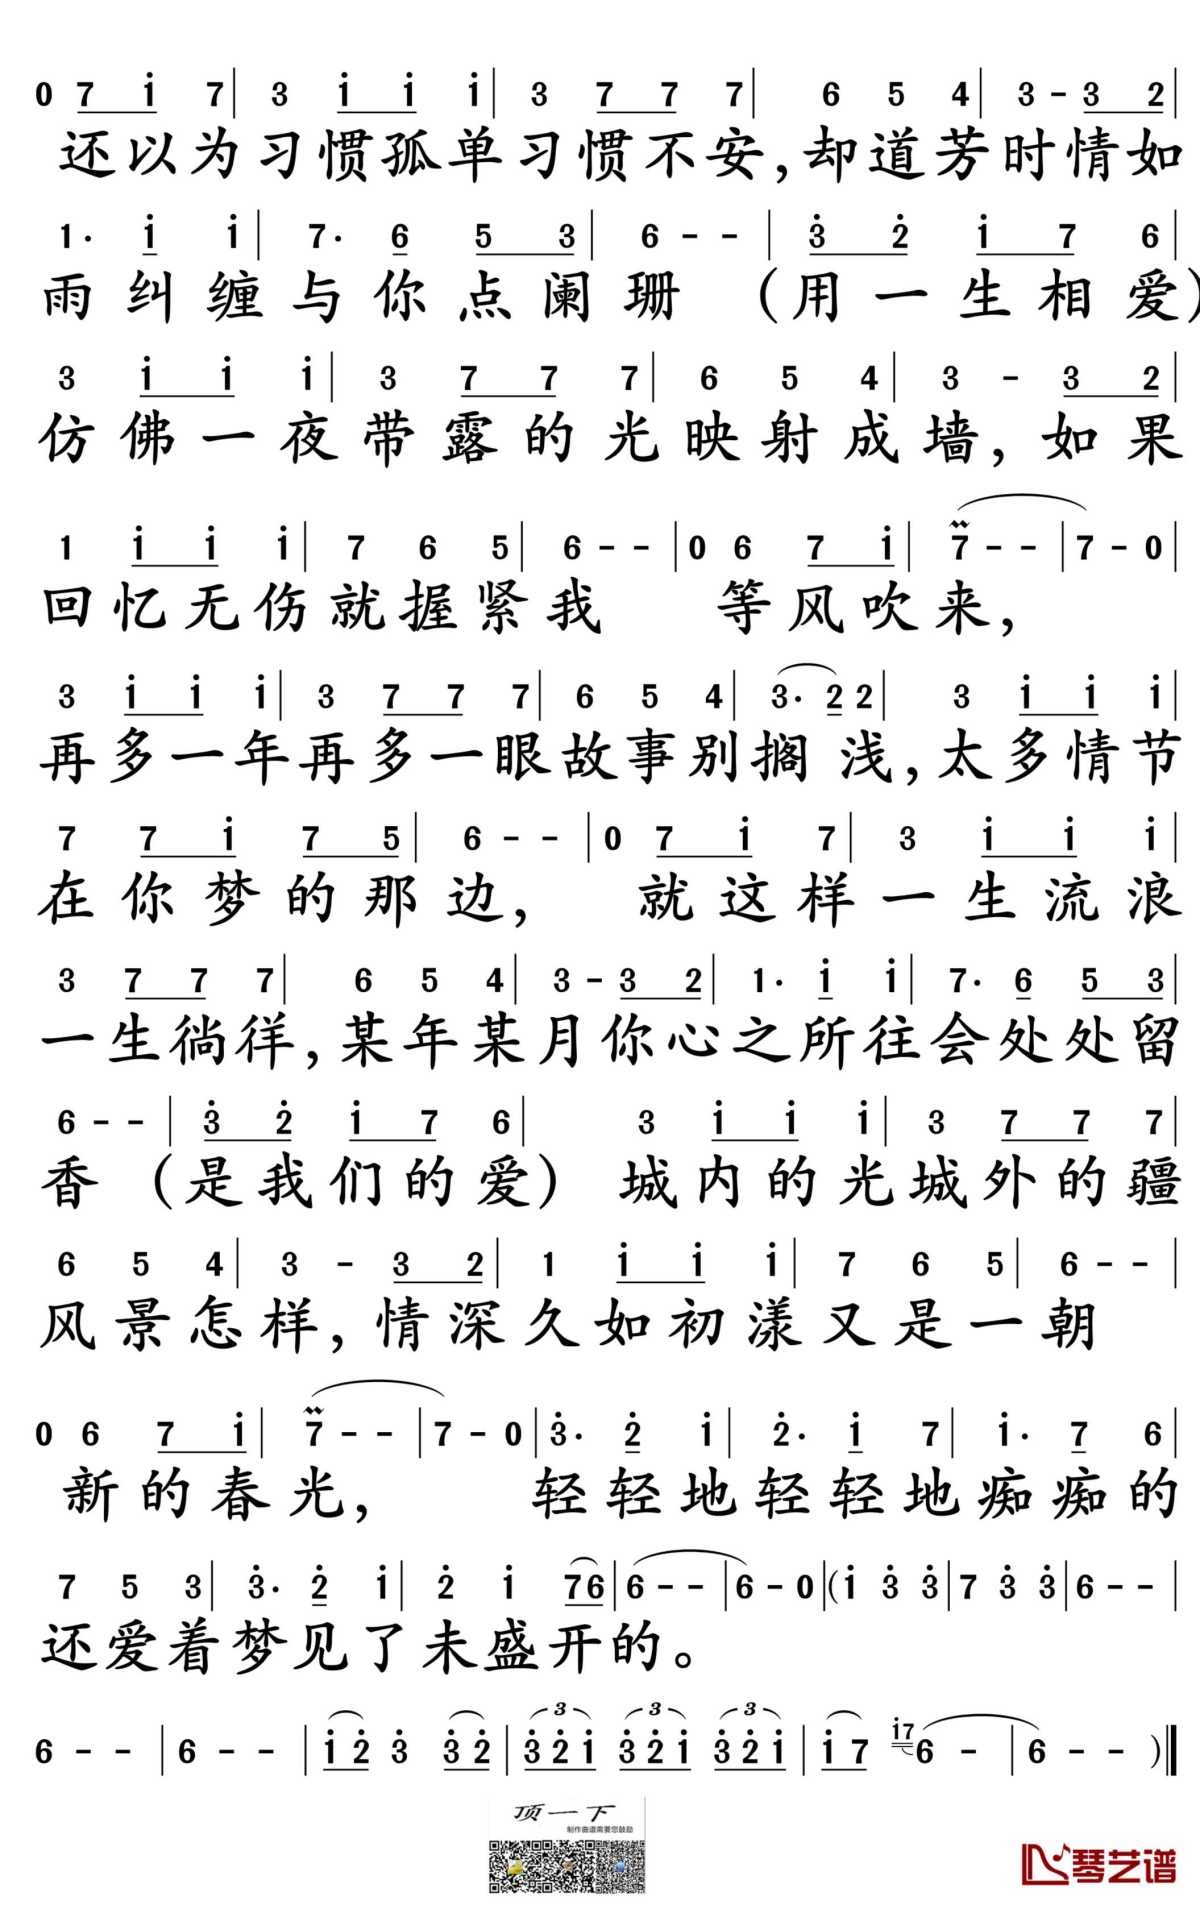 0 7 i 7| 3 i i i| 3 7 7 7| 6 5 4| 3 - 3 2|
还以为习惯孤单习惯不安,却道芳时情如
1· i i| 7· 6 5 3| 6 - - | 3 2 i 7 6|
雨纠缠与你点阑珊 (用一生相爱)
3 i i i| 3 7 7 7| 6 5 4| 3 - 3 2|
仿佛一夜带露的光映射成墙,如果
1 i i i| 7 6 5| 6 - - |0 6 7 i| 7 - - |7 - 0|
回忆无伤就握紧我 等风吹来,
3 i i i| 3 7 7 7| 6 5 4| 3· 2 2| 3 i i i|
再多一年再多一眼故事别搁浅,太多情节
7 7 i 7 5| 6 - - |0 7 i 7| 3 i i i|
在你梦的那边, 就这样一生流浪
3 7 7 7| 6 5 4| 3 - 3 2| 1· i i| 7· 6 5 3|
一生徜徉,某年某月你心之所往会处处留
6 - - | 3 2 i 7 6| 3 i i i| 3 7 7 7|
香 (是我们的爱) 城内的光城外的疆
6 5 4| 3 - 3 2| 1 i i i| 7 6 5| 6 - - |
风景怎样,情深久如初漾又是一朝
0 6 7 i| 7 - - |7 - 0|3· 2 i| 2· i 7| i· 7 6|
新的春光, 轻轻地轻轻地痴痴的
7 5 3| 3· 2 i| 2 i 76|6 - - |6 - 0|(i 3 3|7 3 3|6 - - |
还爱着梦见了未盛开的。
6 - - |6 - - |i 2 3 3 2|3 2 i 3 2 i 3 2 i|i 7 i7 6 - |6 - - )‖
3 3 3
顶一下
制作曲谱需要您鼓励
琴艺谱